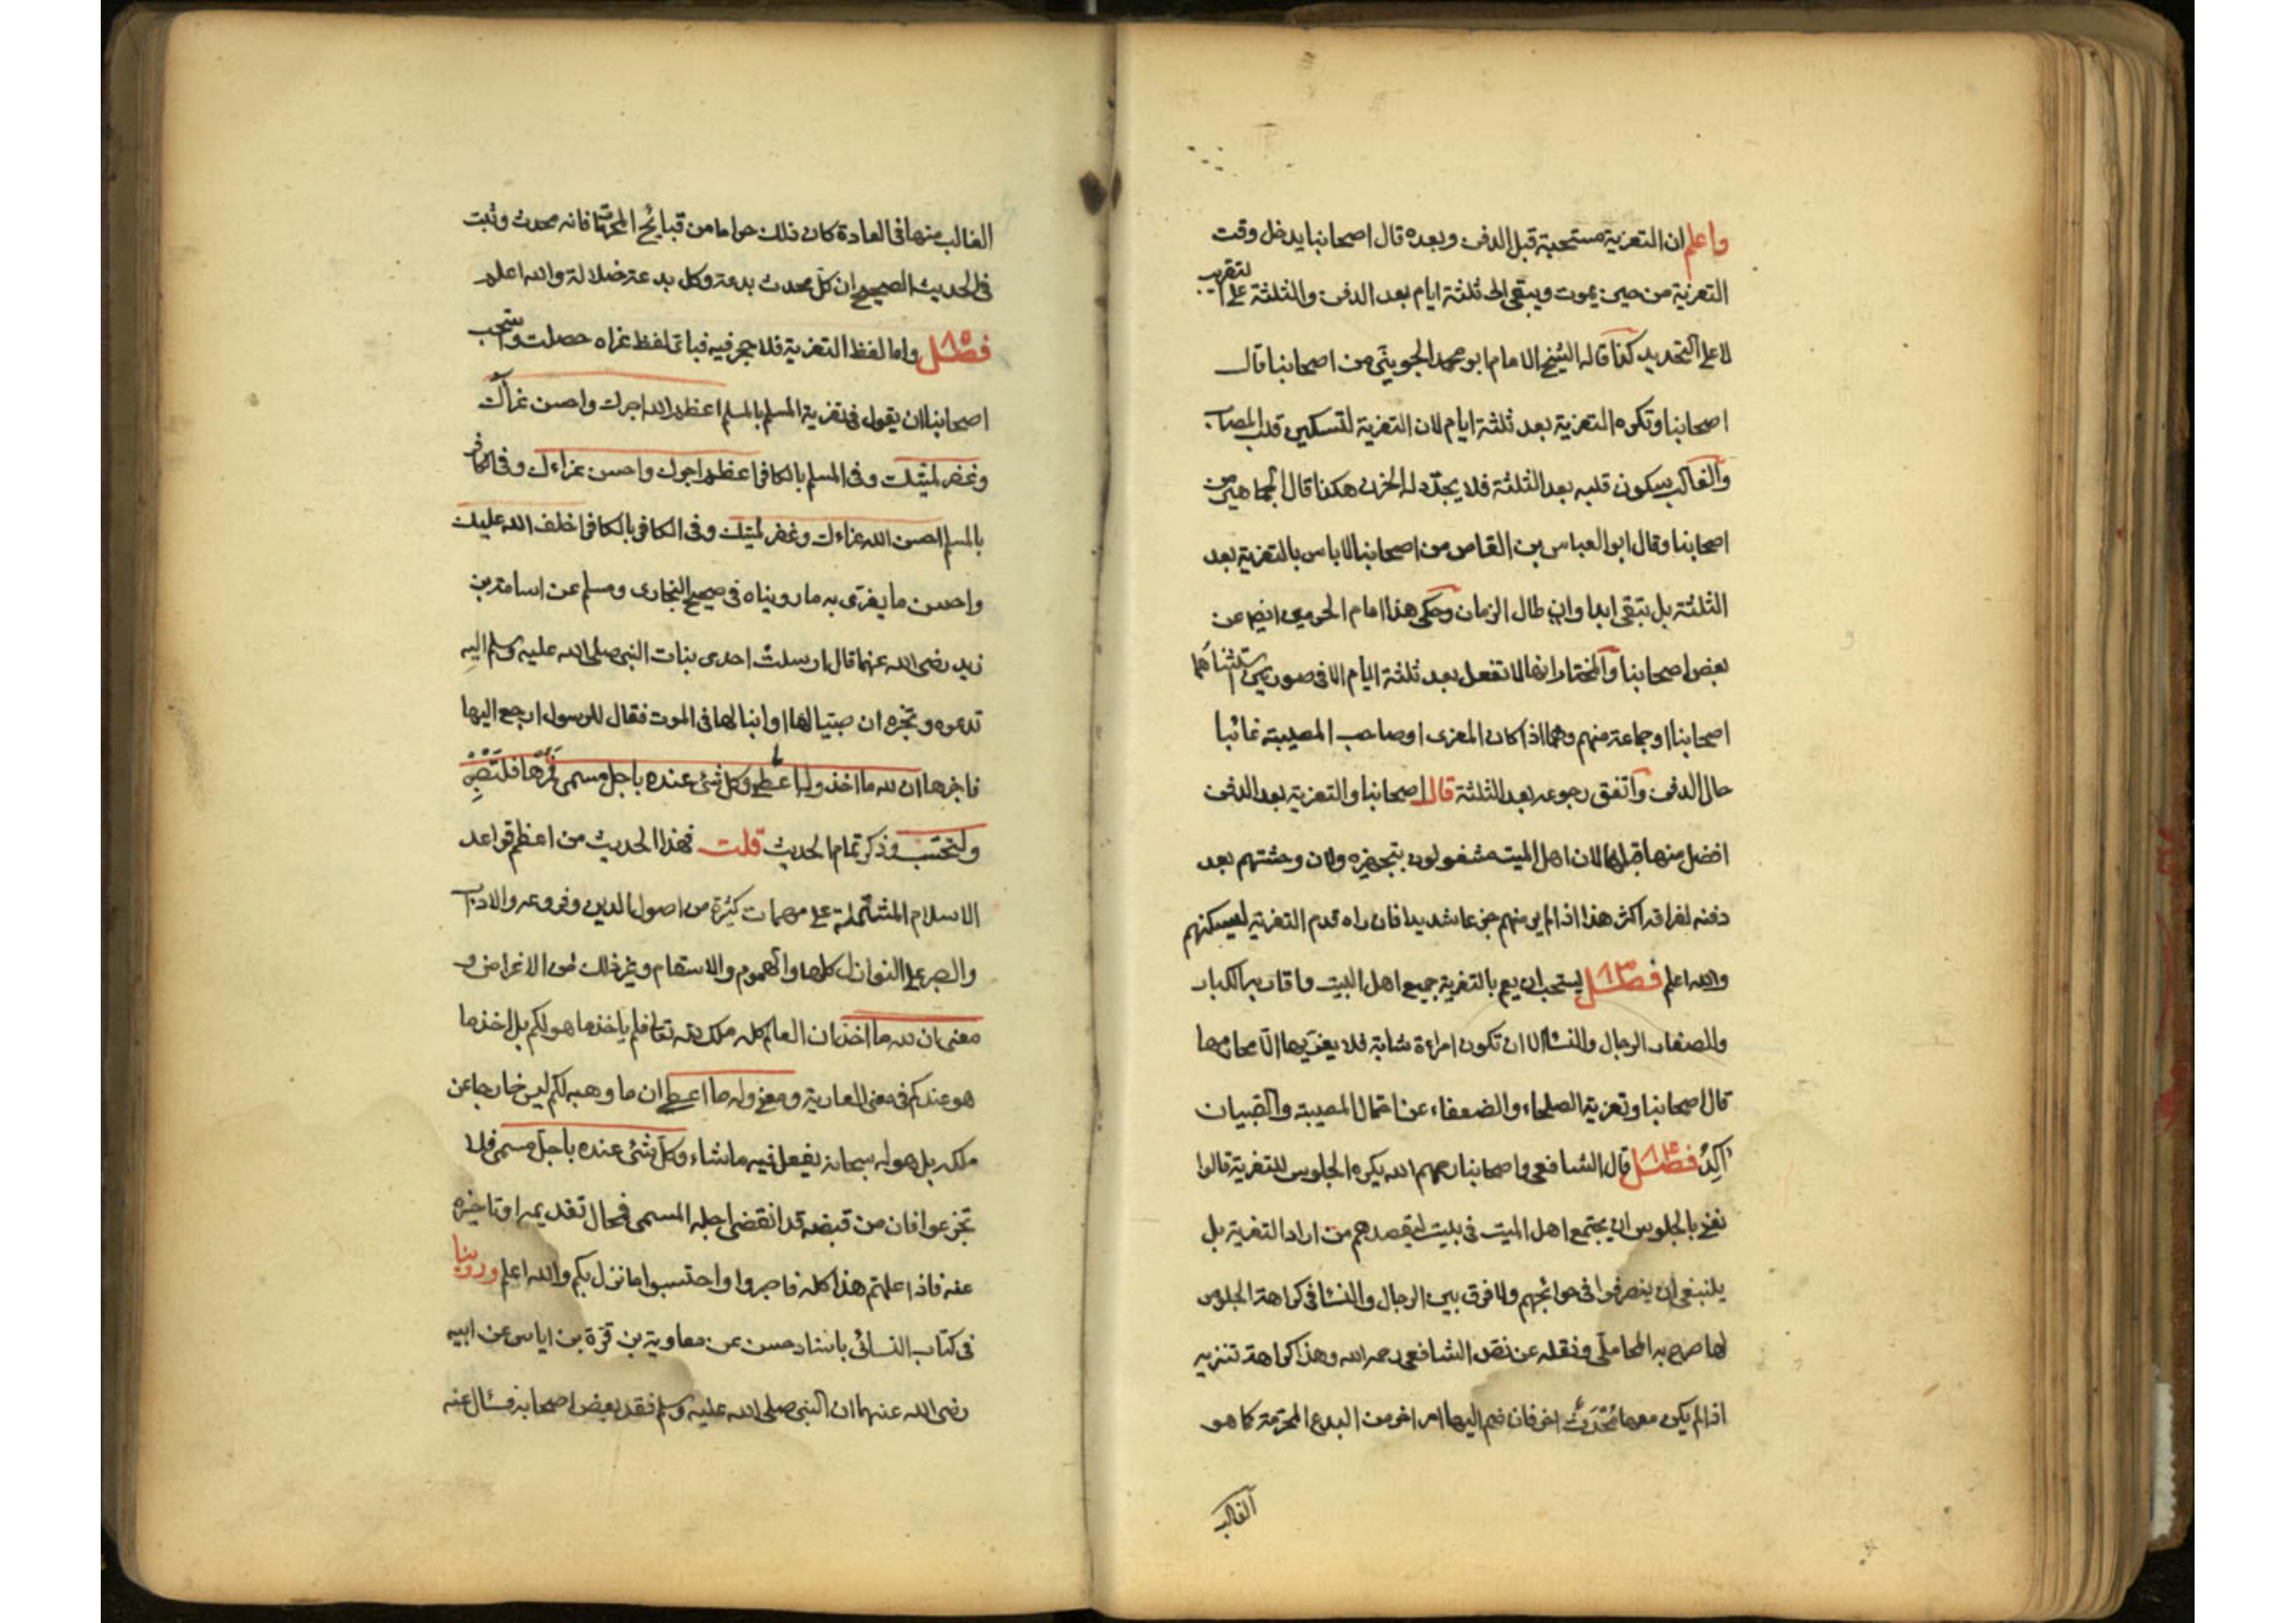 واعلم ان التعزية مستحبة قبل الدفن وبعده قال اصحابنا يدخل وقت
التعزية من حين يموت ويبقى الى ثلثة ايام بعد الدفن والثلثة على التقريب
لا على التحديد كذا قاله الشيخ الامام ابو محمد الجويني من اصحابنا قال
اصحابنا وتكره التعزية بعد ثلثة ايام لان التعزية لتسكين قلب المصاب
والغالب سكون قلبه بعد الثلثة فلا يجدد له الحزن هكذا قال الجماهير من
اصحابنا وقال ابو العباس بن القاص من اصحابنا لا باس بالتعزية بعد
الثلثة بل تبقى ابدا وان طال الزمان وحكى هذا امام الحرمين ايضا عن
بعض اصحابنا والمختار انها لا تفعل بعد ثلثة ايام الا في صورتين استثناهما
اصحابنا او جماعة منهم وهما اذا كان المعزى او صاحب المصيبة غائبا
حال الدفن واتفق رجوعه بعد الثلثة قال اصحابنا والتعزية بعد الدفن
افضل منها قبلها لان اهل الميت مشغولون بتجهيزه ولان وحشتهم بعد
دفنه لفراقه اكثر هذا اذا لم ير منهم جزعا شديدا فان راه قدم التعزية ليسكنهم
والله اعلم فصل يستحب ان يعم بالتعزية جميع اهل البيت واقاربه الكبار
والصغار الرجال والنسا الا ان تكون امراءة شابة فلا يعزيها الا محارمها
قال اصحابنا وتعزية الصلحاء والضعفاء عن احتمال المصيبة والصبيان
اكد فصل قال الشافعى واصحابنا رحمهم الله يكره الجلوس للتعزية قالوا
نعنى بالجلوس ان يجتمع اهل الميت فى بيت ليقصدهم من اراد التعزية بل
ينبغى ان ينصرفوا فى حوائجهم ولا فرق بين الرجال والنسا فى كراهة الجلوس
لها صرح به المحاملى ونقله عن نص الشافعى رحمه الله وهذا كراهة تنزيه
اذا لم يكن معها مُحْدَثٌ اخر فان ضم اليها امر اخر من البدع المحرمة كما هو
الغالب
الغالب منها فى العادة كان ذلك حراما من قبائح المحرمات فانه محدث وثبت
فى الحديث الصحيح ان كل محدث بدعة وكل بدعة ضلالة والله اعلم
فصل واما لفظ التعزية فلا حجر فيه فباى لفظ عزاه حصلت واستحب
اصحابنا ان يقول فى تعزية المسلم بالمسلم اعظم الله اجرك واحسن عزاك
وغفر لميتك وفى المسلم بالكافر اعظم اجرك واحسن عزاءك وفى الكافر
بالمسلم احسن الله عزاءك وغفر لميتك وفى الكافر بالكافر اخلف الله عليك
واحسن ما يعزى به ما رويناه فى صحيح البخارى ومسلم عن اسامة بن
زيد رضى الله عنهما قال ارسلت احدى بنات النبى صلى الله عليه وسلم اليه
تدعوه وتخبره ان صبيا لها او ابنا لها فى الموت فقال للرسول ارجع اليها
فاخبرها ان لله ما اخذ وله ما اعطى وكل شئ عنده باجل مسمى فمرها فلتصبر
ولتحتسب وذكر تمام الحديث قلت فهذا الحديث من اعظم قواعد
الاسلام المشتملة على مهمات كثيرة من اصول الدين وفروعه والاداب
والصبر على النوازل كلها والهموم والاسقام وغير ذلك من الاغراض و
معنى ان لله ما اخذ ان العالم كله ملك لله تعالى فلم ياخذ ما هو لكم بل اخذ ما
هو عندكم فى معنى العارية ومعنى وله ما اعطى ان ما وهبه لكم ليس خارجا عن
ملكه بل هو له سبحانه يفعل فيه ما شاء وكل شئ عنده باجل مسمى فلا
تجزعوا فان من قبضه قد انقضى اجله المسمى فمحال تقديمه او تاخيره
عنه فاذا علمتم هذا كله فاصبروا واحتسبوا ما نزل بكم والله اعلم وروينا
فى كتاب النسائى باسناد حسن عن معاوية بن قرة بن اياس عن ابيه
رضى الله عنهما ان النبى صلى الله عليه وسلم فقد بعض اصحابه فسئال عنه